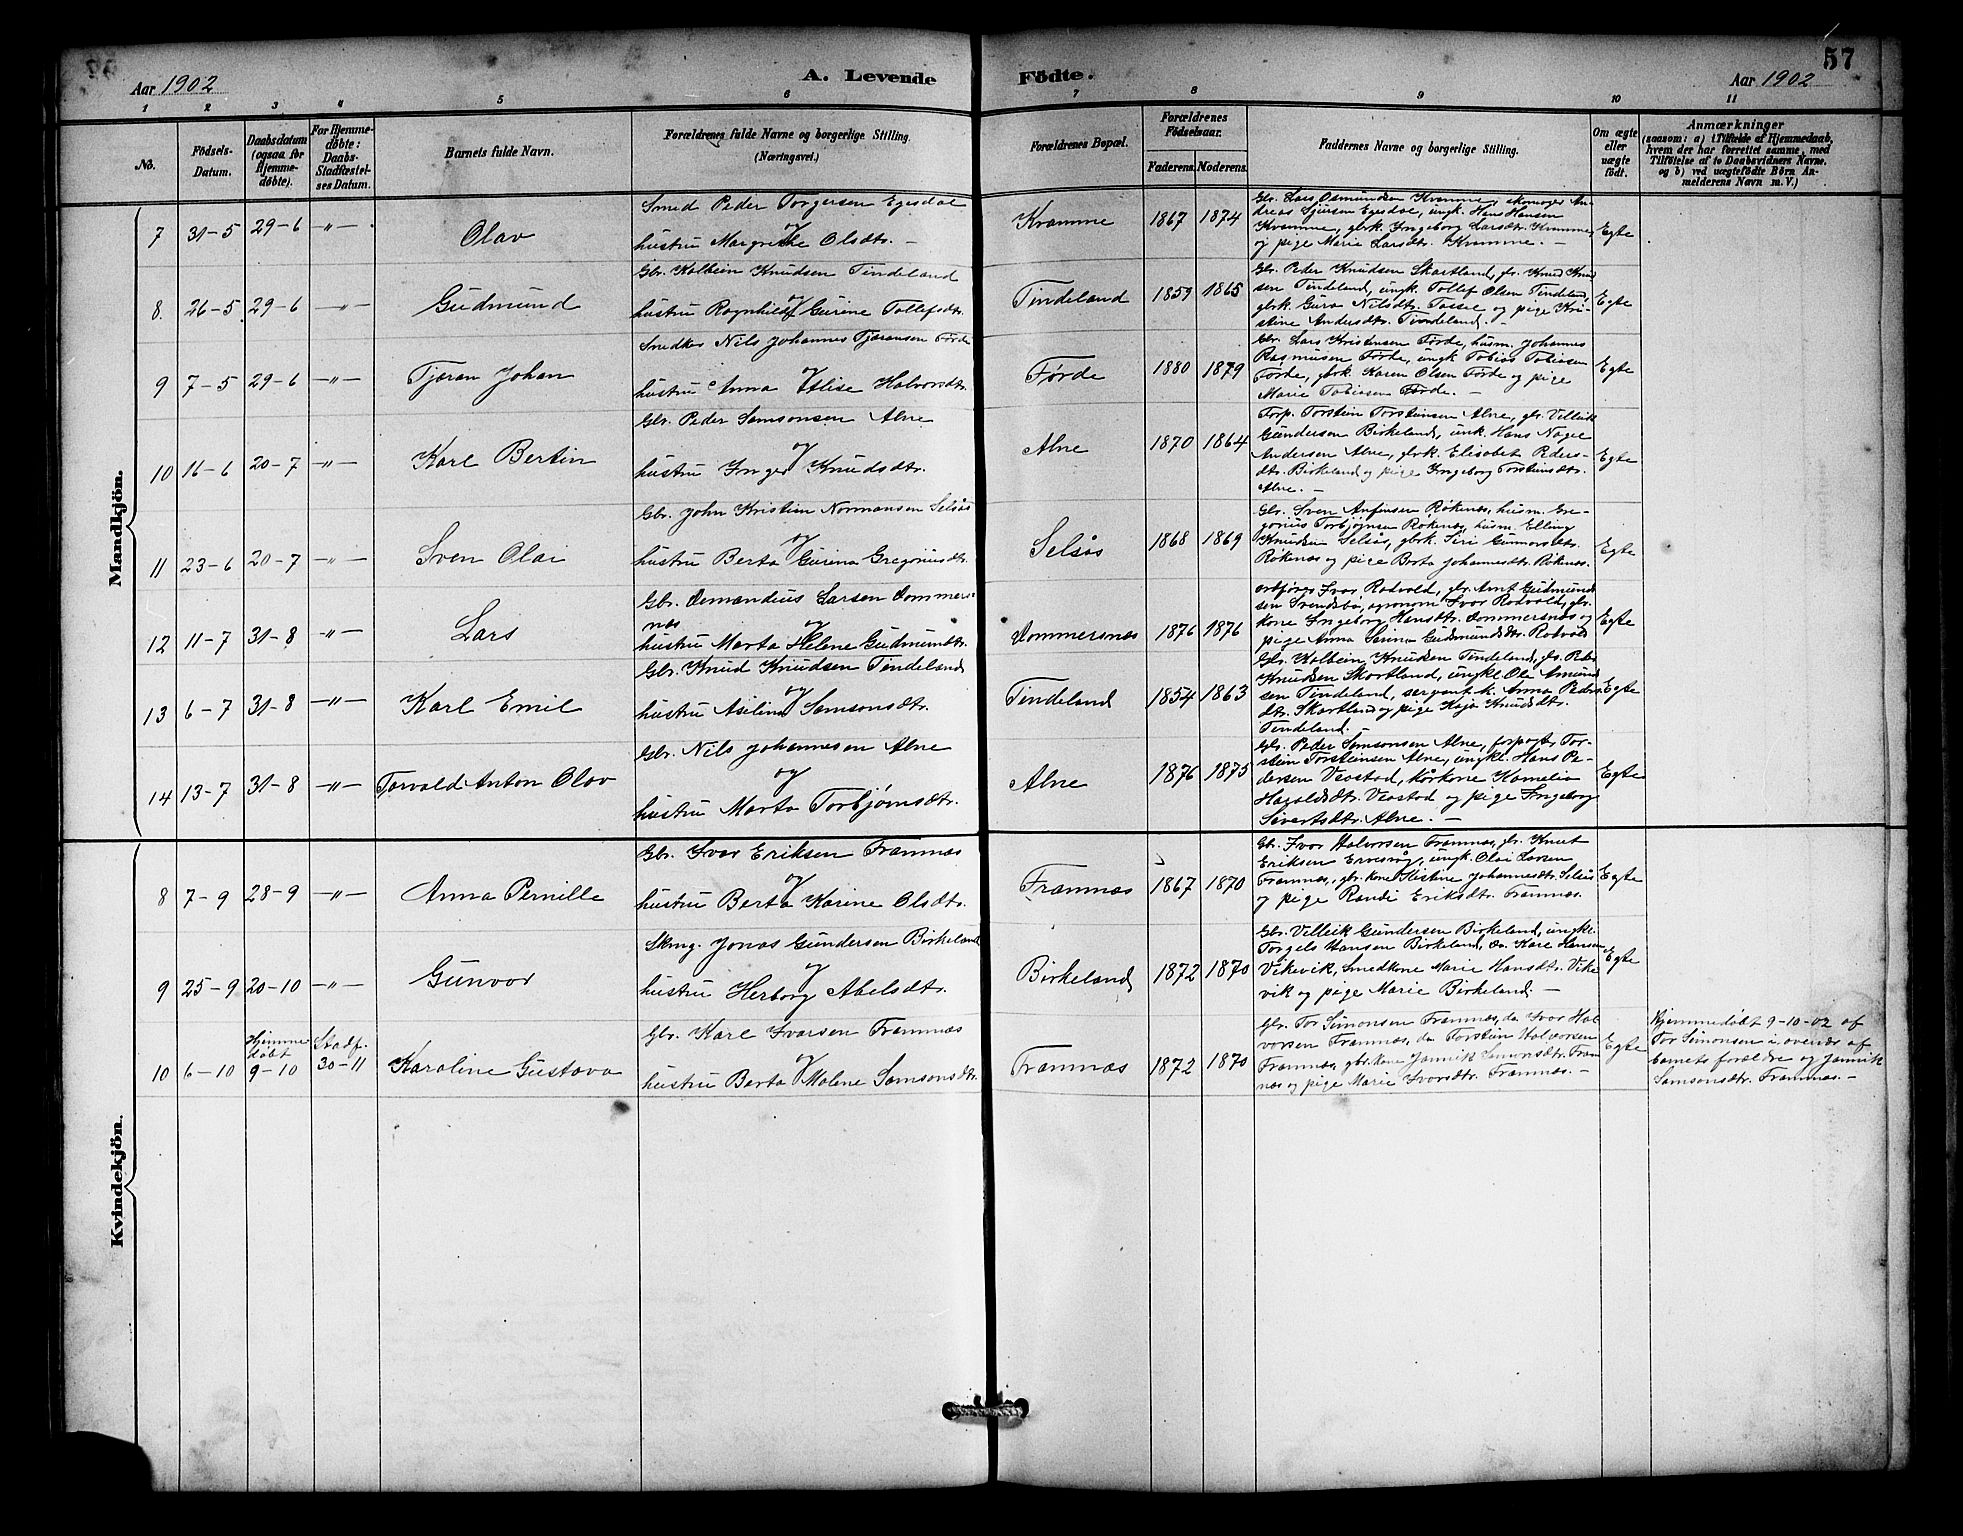 57
Aar 1902
A. Levende Födte.
Aar 1902
1 2 3 4 5 6 7 8 9 10 11
No.
Födsels-Datum.
Daabsdatum (ogsaa for Hjemmedöbte).
For Hjemmedöbte: Daabs-Stadfæstelses Datum.
Barnets fulde Navn.
Forældrenes fulde Navne og borgerlige Stilling. (Næringsvei.)
Forældrenes Bopæl.
Forældrenes Födselsaar.
Faderens. Moderens.
Faddernes Navne og borgerlige Stilling.
Om ægte eller uægte födt.
Anmærkninger
(saasom: a) i Tilfælde af Hjemmedaab, hvem der har forrettet samme, med Tilföielse af to Daabsvidners Navne. og b) ved uægtefödte Börn Anmelderens Navn m. V.)
Mandkjön.
7 31-5 29-6 -"- Olav
Smed Peder Torgersen Egesdal
og
hustru Margrethe Olsdtr. -
Kvamme 1867 1874
Gbr. Lars Osmundsen Kvamme, skomager An-
dreas Sjursen Egesdal, ungk. Hans Hansen
Kvamme, gbrk. Ingeborg Larsdtr. Kvamme,
og pige Marie Larsdtr. Kvamme. -
Egte
8 26-5 29-6 -"- Gudmund
Gbr. Kolbein Knudsen Tindeland
og
hustru Ragnhild Gurine Tollefsdtr.
Tindeland 1859 1865
Gbr. Peder Knudsen Skartland, gbr. Knud Knud
sen Tindeland, ungk. Tollef Olsen Tindeland,
gbrk. Guro Nilsdtr. Tassel og pige Kri-
stine Andersdtr. Tindeland. -
Egte
9 7-5 29-6 -"- Tjøran Johan
Snedker Nils Johannes Tjøransen Førde
og
hustru Anna Elise Halvorsdtr.
Førde 1880 1879
Gbr. Lars Kristensen Førde, husm. Johannes
Rasmusen Førde, ungk. Tobias Tobiasen
Førde, gbrk. Karen Olsen Førde og pige
Marie Tobiasen Førde. -
Egte
10 16-6 20-7 -"- Karl Bertin
Gbr. Peder Samsonsen Alne
og
hustru Inger Knudsdtr.
Alne 1870 1864
Forp. Torstein Torsteinsen Alne, gbr. Villeik
Gundersen Birkeland, unk. Hans Nagel
Andersen Alne, gbrk. Elisabet Peders-
dtr. Birkeland og pige Ingeborg Torsteinsdtr.
Alne. -
Egte
11 23-6 20-7 -"- Sven Olai
Gbr. John Kristian Normansen Selsås
og
hustru Berta Gurina Gregoriusdtr.
Selsås 1868 1869
Gbr. Sven Anfinsen Røkenæs, husm. Gre-
gorius Torbjørnsen Røkenæs, husm. Elling
Knudsen Selsås, gbrk. Siri Gunnarsdtr.
Røkenæs og pige Berta Johannesdtr. Røkenæs.
Egte
12 11-7 31-8 -"- Lars
Gbr. Osmundius Larsen Dommers-
næs og
hustru Marta Helene Gudmundsdtr.
Dommersnæs 1876 1876
ordfører Ivar Rødvold, gbr. Arnt Gudmund
sen Svendsbø, agronom Ivar Rødvold, gbr.
kone Ingeborg Hansdtr. Dommersnæs og
pige Anna Serina Gudmundsdtr. Rødvold
Egte
13 6-7 31-8 -"- Karl Emil
Gbr. Knud Knudsen Tindeland
og
hustru Aselina Samsonsdtr.
Tindeland 1854 1863
Gbr. Kolbein Knudsen Tindeland, gb. Peder
Knudsen Skartland, ungkl. Ole Amund
sen Tindeland, sergent.k. Anna Peders
dtr. Skartland og pige Kaja Knudsdtr.
Tindeland.
Egte
14 13-7 31-8 -"- Torvald Anton Olav
Gbr. Nils Johannesen Alne
og
hustru Marta Torbjørnsdtr.
Alne 1876 1875
Gbr. Peder Samsonsen Alne, forpagt. Tor-
stein Torsteinsen Alne, ungkl. Hans Pe-
dersen Vestad, kårkone Kamelia
Haraldsdtr. Vestad og pige Ingeborg
Sivertsdtr. Alne. -
Egte
Kvindekjön.
8 7-9 28-9 -"- Anna Pernille
Gbr. Ivar Eriksen Framnæs
og
hustru Berta Karine Olsdtr.
Framnæs 1867 1870
Gb. Ivar Halvorsen Framnæs, gbr. Knut
Eriksen Ervesvåg, ungk. Olai Larsen
Framnæs, gbr.kone Kristine Johannesdtr. Selsås
og pige Randi Eriksdtr. Framnæs.
Egte
9 25-9 20-10 -"- Gunvor
Skrug. Jonas Gundersen Birkeland
og
hustru Herborg Abelsdtr.
Birkeland 1872 1870
Gbr. Villeik Gundersen Birkeland, ungkl.
Torgels Hansen Birkeland, do. Karl Hansen
Vikevik, smedkone Marie Hansdtr. Vike
vik og pige Marie Birkeland. -
Egte
10 6-10 Hjemmedøbt 9-10 Stadf. 30-11 Karoline Gustava
Gbr. Karl Ivarsen Framnæs
og
hustru Berta Malene Samsonsdtr.
Framnæs 1872 1870
Gbr. Tor Simonsen Framnæs, do Ivar Hal
vorsen Framnæs, do Torstein Halvorsen
Framnæs, gbr.kone Jannik Samsonsdtr. Fram
næs og pige Marie Ivarsdtr. Framnæs. -
Egte
Hjemmedøbt 9-10-02 af
Tor Simonsen i overvær af
barnets forældre og Jannik
Samsonsdtr. Framnæs. -